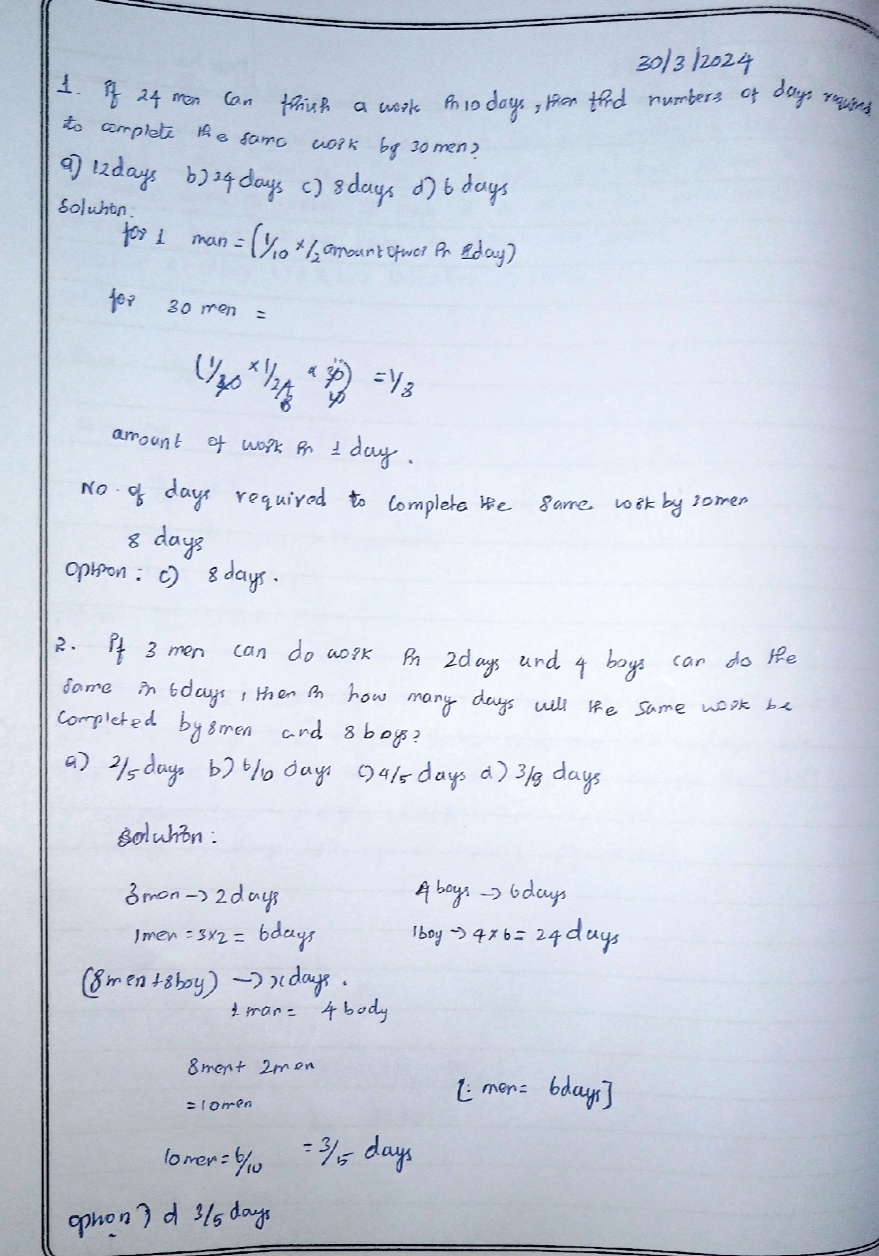 30/3/2024
1. If 24 men can finish a work in 10 days, then find numbers of days required
to complete the same work by 30 men?
a) 12days b) 24 days c) 8 days d) 6 days
Solution:
for 1 man = (1/10 × 1/2 amount of wor in day)
for 30 men =
(1/30 × 1/24 × 30) = 1/8
amount of work in 1 day.
No. of days required to complete the same work by 30men
8 days
Option: c) 8 days.
2. If 3 men can do work in 2days and 4 boys can do the
same in 6days, then in how many days will the same work be
Completed by 8men and 8 boys?
a) 2/5 days b) 6/10 days c) 4/5 days d) 3/8 days
Solution:
3 men -> 2 days 4 boys -> 6days
1men = 3x2 = 6days 1boy -> 4x6 = 24 days
(8men+8boy) -> x days.
1 man = 4 body
8men+ 2men
[: men= 6days]
=10men
10men = 6/10 = 3/5 days
option) d 3/5 days